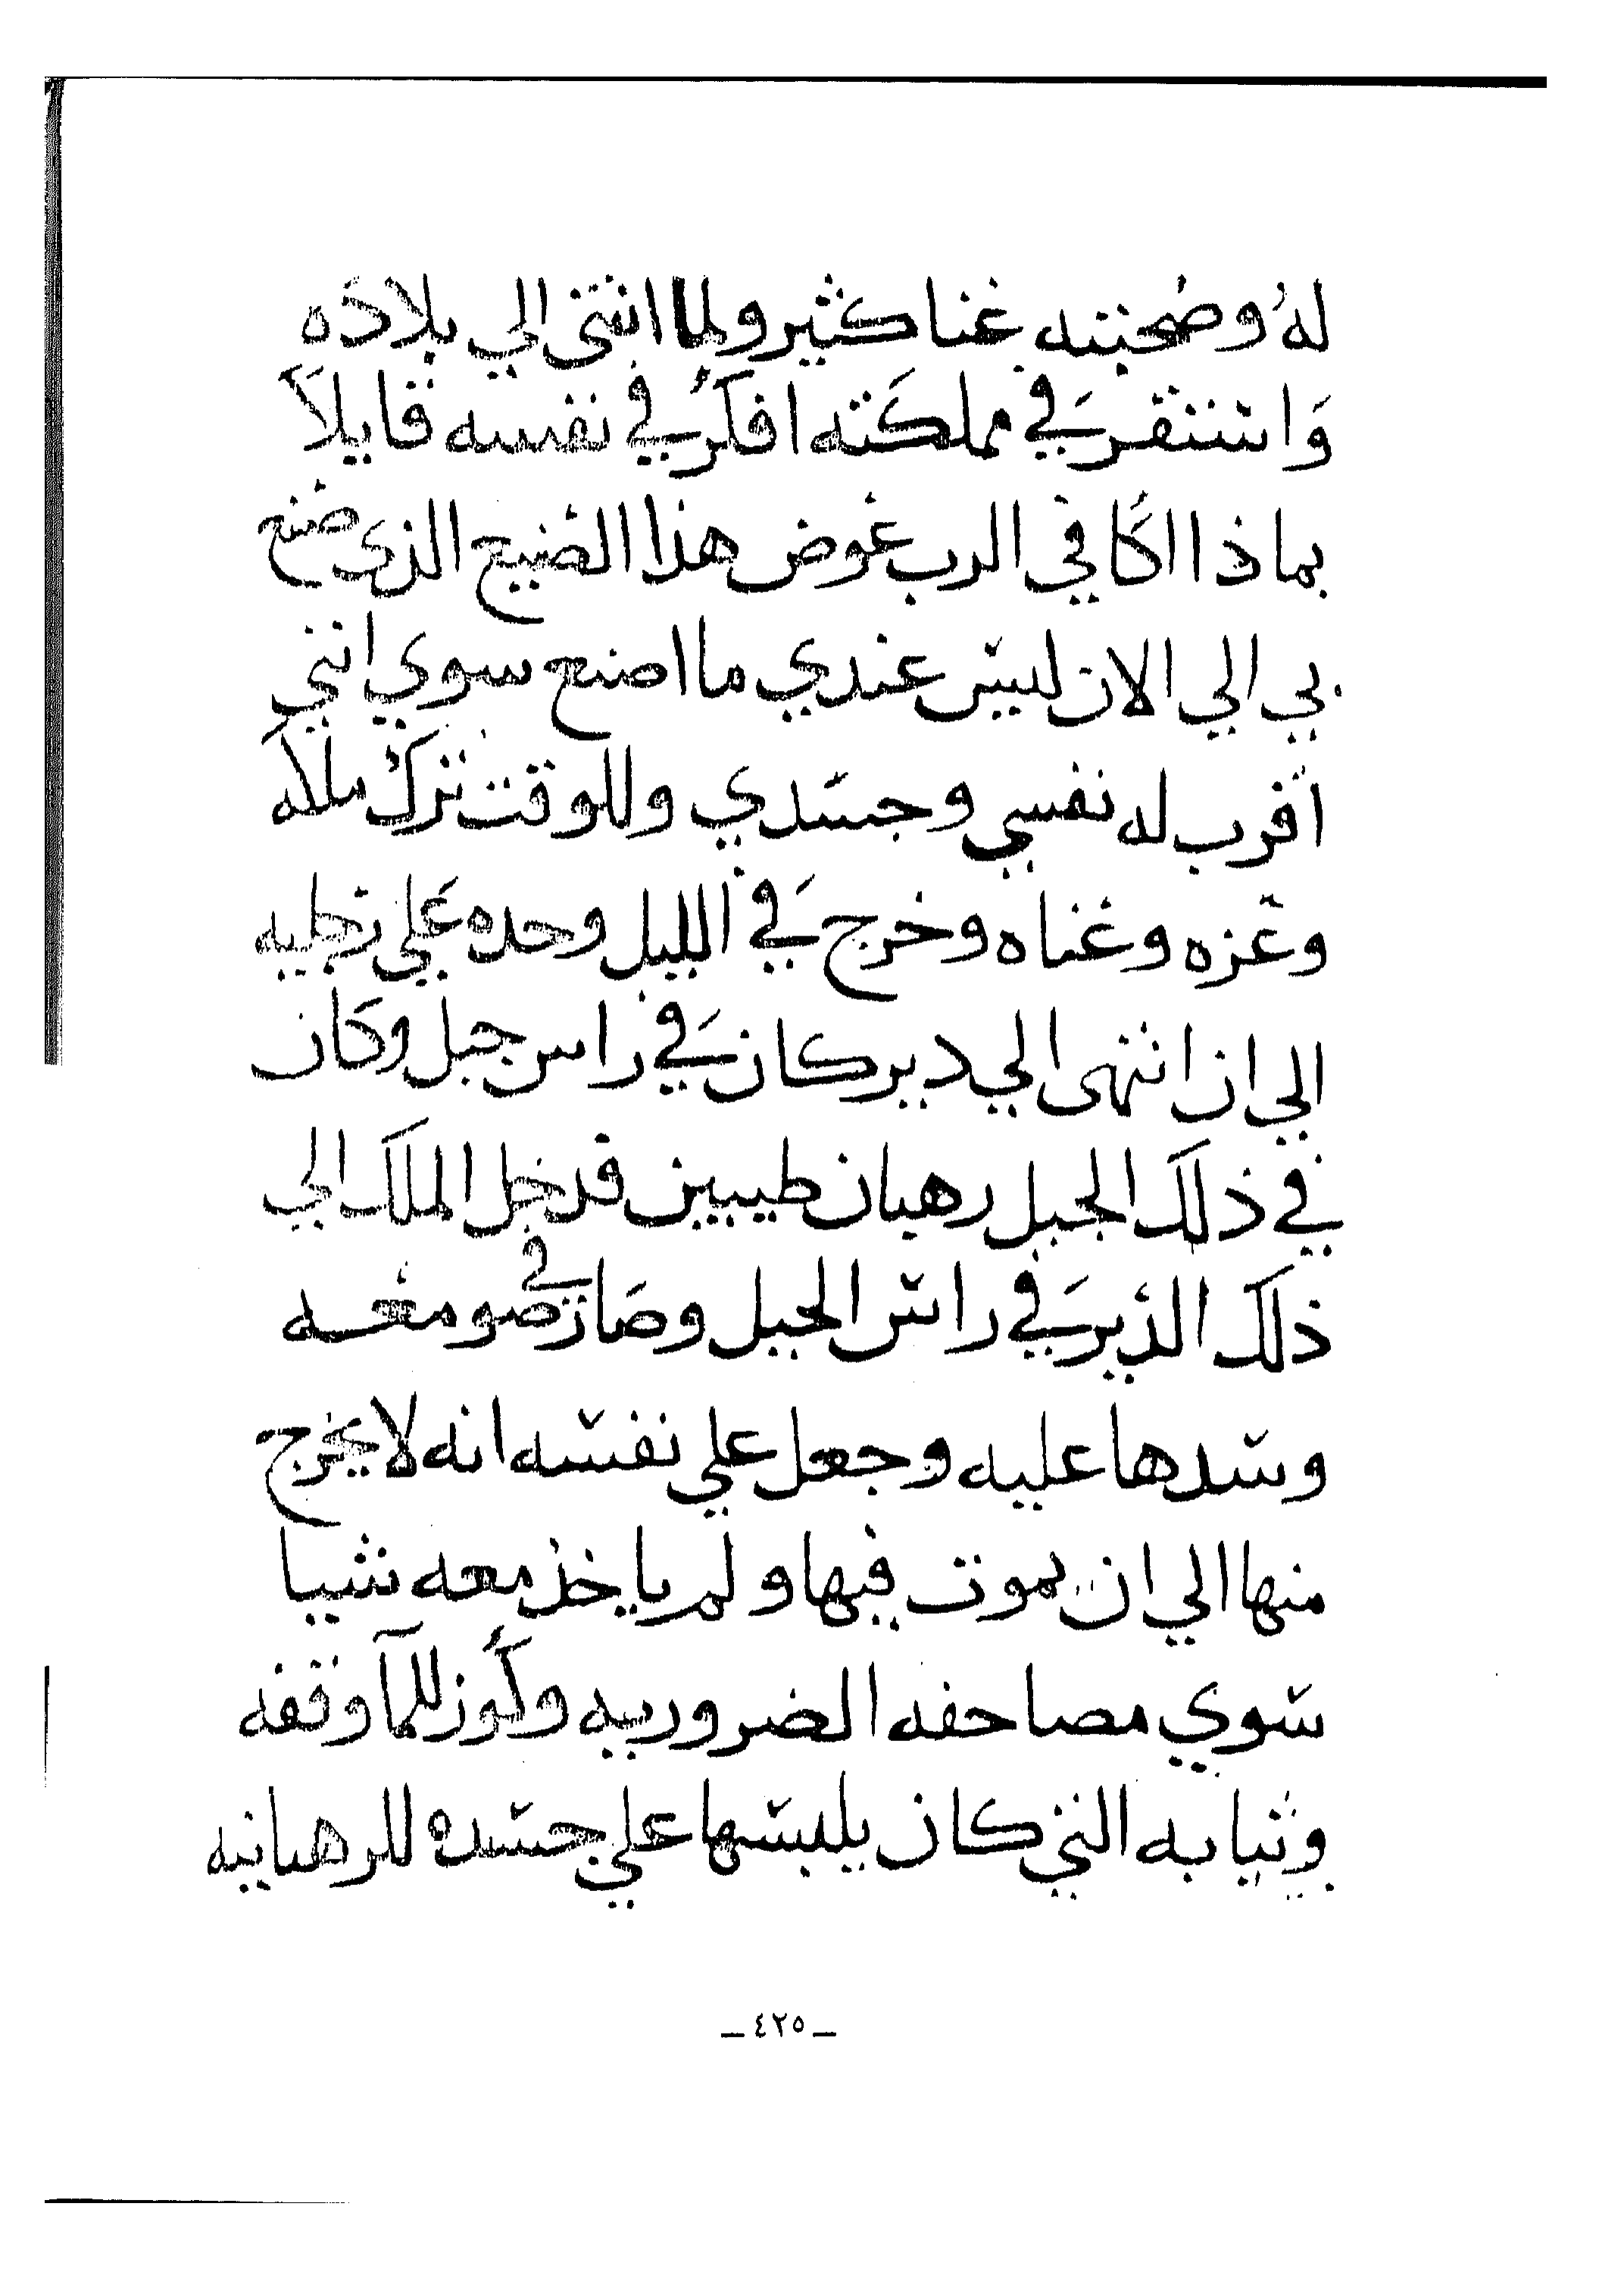 له وصحبته غنا كثير ولما انتنى الي بلاده
واستقر في مملكته افكر في نفسه قايلا
بماذا اكافي الرب عوض هذا الصنيع الذي صنع
بي الي الان ليس عندي ما اصنع سوي انني
اقرب له نفسي وجسدي وللوقت ترك ملكه
وعزه وغناه وخرج في الليل وحده علي رجليه
الي ان انتهى الي دير كان في راس جبل وكان
في ذلك الجبل رهبان طيبين فدخل الملك الي
ذلك الدير في راس الجبل وصار في صومعه
وسدها عليه وجعل علي نفسه انه لا يخرج
منها الي ان يموت فيها ولم ياخذ معه شيا
سوي مصاحفه الضروريه وكوز للمآ وقفه
وثيابه التي كان يلبسها علي جسده للرهبانيه
ـ ٤٢٥ ـ